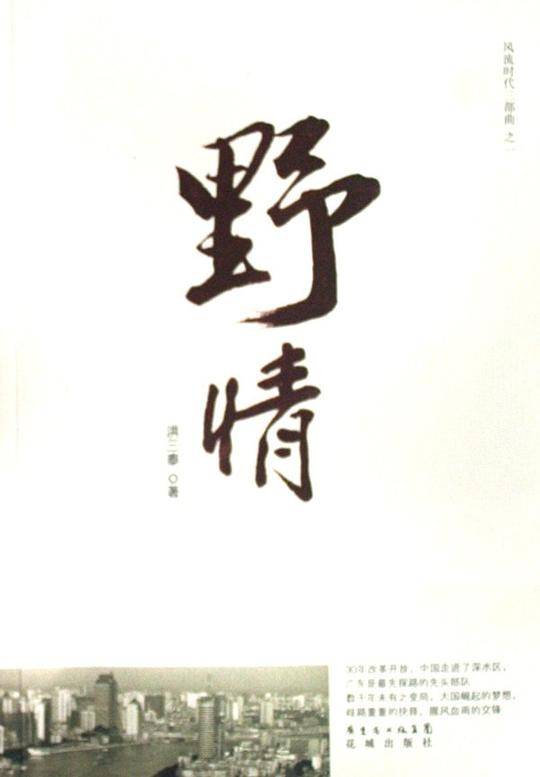 风流时代三部曲 之一
野情
洪三泰 ◎著
30年改革开放，中国走进了深水区，
广东是最先探路的先头部队
数千年未有之变局，大国崛起的梦想，
歧路重重的抉择，腥风血雨的交锋
广东省出版集团
花城出版社